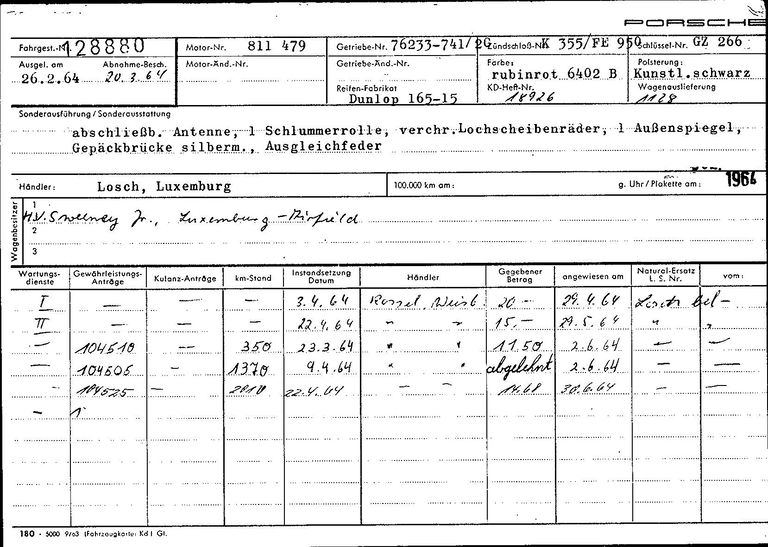 PORSCHE
Fahrgest.-Nr. 128880 Motor-Nr. 811 479 Getriebe-Nr. 76233-741/2 Zündschloß-Nr. K 355/FE 950 Schlüssel-Nr. GZ 266
Ausgel. am Abnahme-Besch. Motor-Änd.-Nr. Getriebe-Änd.-Nr. Farbe: Polsterung:
26.2.64 20.3.64 rubinrot 6402 B Kunstl.schwarz
Reifen-Fabrikat KD-Heft-Nr. Wagenauslieferung
Dunlop 165-15 18926 1128
Sonderausführung / Sonderausstattung
abschließb. Antenne, 1 Schlummerrolle, verchr.Lochscheibenräder, 1 Außenspiegel,
Gepäckbrücke silberm., Ausgleichfeder
Händler: Losch, Luxemburg 100.000 km am: g. Uhr / Plakette am: 1966
Wagenbesitzer
1 H.V. Sweeney Jr., Luxemburg - Airfield
2
3
Wartungs-dienste Gewährleistungs-Anträge Kulanz-Anträge km-Stand Instandsetzung Datum Händler Gegebener Betrag angewiesen am Natural-Ersatz L. S. Nr. vom:
I — — — 3.4.64 20.- 29.4.64 Losch bel -
II — — — 22.4.64 " " 15.— 29.5.64 " "
— 104510 — 350 23.3.64 " " 11.50 2.6.64 — —
— 104505 - 1370 9.4.64 " " abgelehnt 2.6.64 — —
- 104525 — 2810 22.4.64 — — 14.68 30.6.64 — —
—
180 - 5000 9/63 (Fahrzeugkartei Kd) Gt.